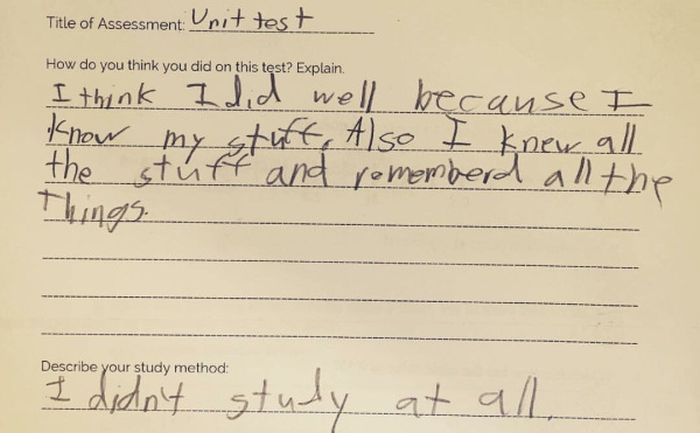 Title of Assessment: Unit test
How do you think you did on this test? Explain.
I think I did well because I
know my stuff. Also I knew all
the stuff and rememberd all the
things.
Describe your study method:
I didn't study at all.